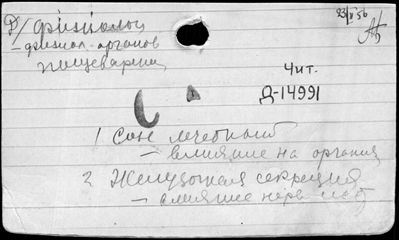 Д/ физиолог
23/II 56
– физиол. органов
пищеварени
Чит.
Д-14991
1 Сон лечебный
– влияние на органы
2 Желудочная секреция
– влияние нерв